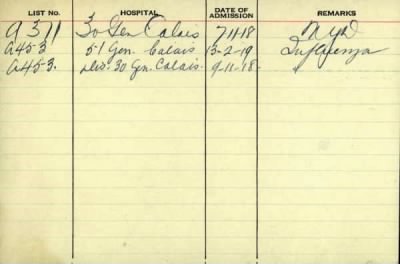 LIST No. HOSPITAL DATE OF ADMISSION REMARKS
A 3711 30 Gen Calais 7-11-18 NYD
A45-3 51 Gen. Calais 13-2-19 Influenza
A45-3. Dis. 30 Gen. Calais. 9-11-18.